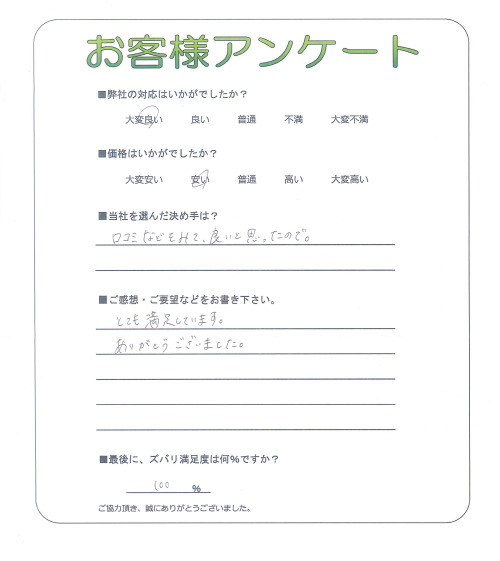 お客様アンケート
■弊社の対応はいかがでしたか？
大変良い 良い 普通 不満 大変不満
■価格はいかがでしたか？
大変安い 安い 普通 高い 大変高い
■当社を選んだ決め手は？
口コミなどをみて、良いと思ったので。
■ご感想・ご要望などをお書き下さい。
とても満足しています。
ありがとうございました。
■最後に、ズバリ満足度は何%ですか？
100 %
ご協力頂き、誠にありがとうございました。